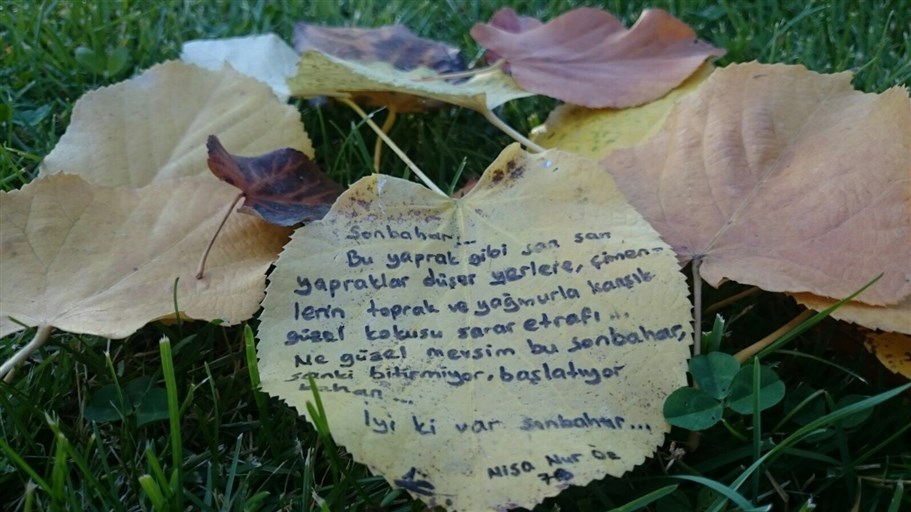 Sonbahar...
Bu yaprak gibi sarı sarı
yapraklar düşer yerlere, çimen-
lerin toprak ve yağmurla karışık
güzel kokusu sarar etrafı...
Ne güzel mevsim bu sonbahar,
sanki bitirmiyor, başlatıyor
bahar...
İyi ki var sonbahar...
Nisa Nur Öz